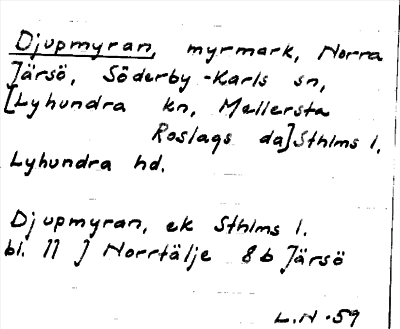 Djupmyran, myrmark, Norra
Järsö, Söderby-Karls sn,
[Lyhundra kn, Mellersta
Roslags da] Sthlms l.
Lyhundra hd.
Djupmyran, ek Sthlms l.
bl. 11 J Norrtälje 8b Järsö
L.N.59